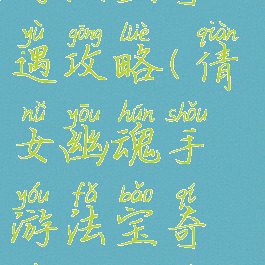 yù gōng lüè qiàn
遇攻略(倩
nǚ yōu hún shǒu
女幽魂手
yóu fǎ bǎo qí
游法宝奇